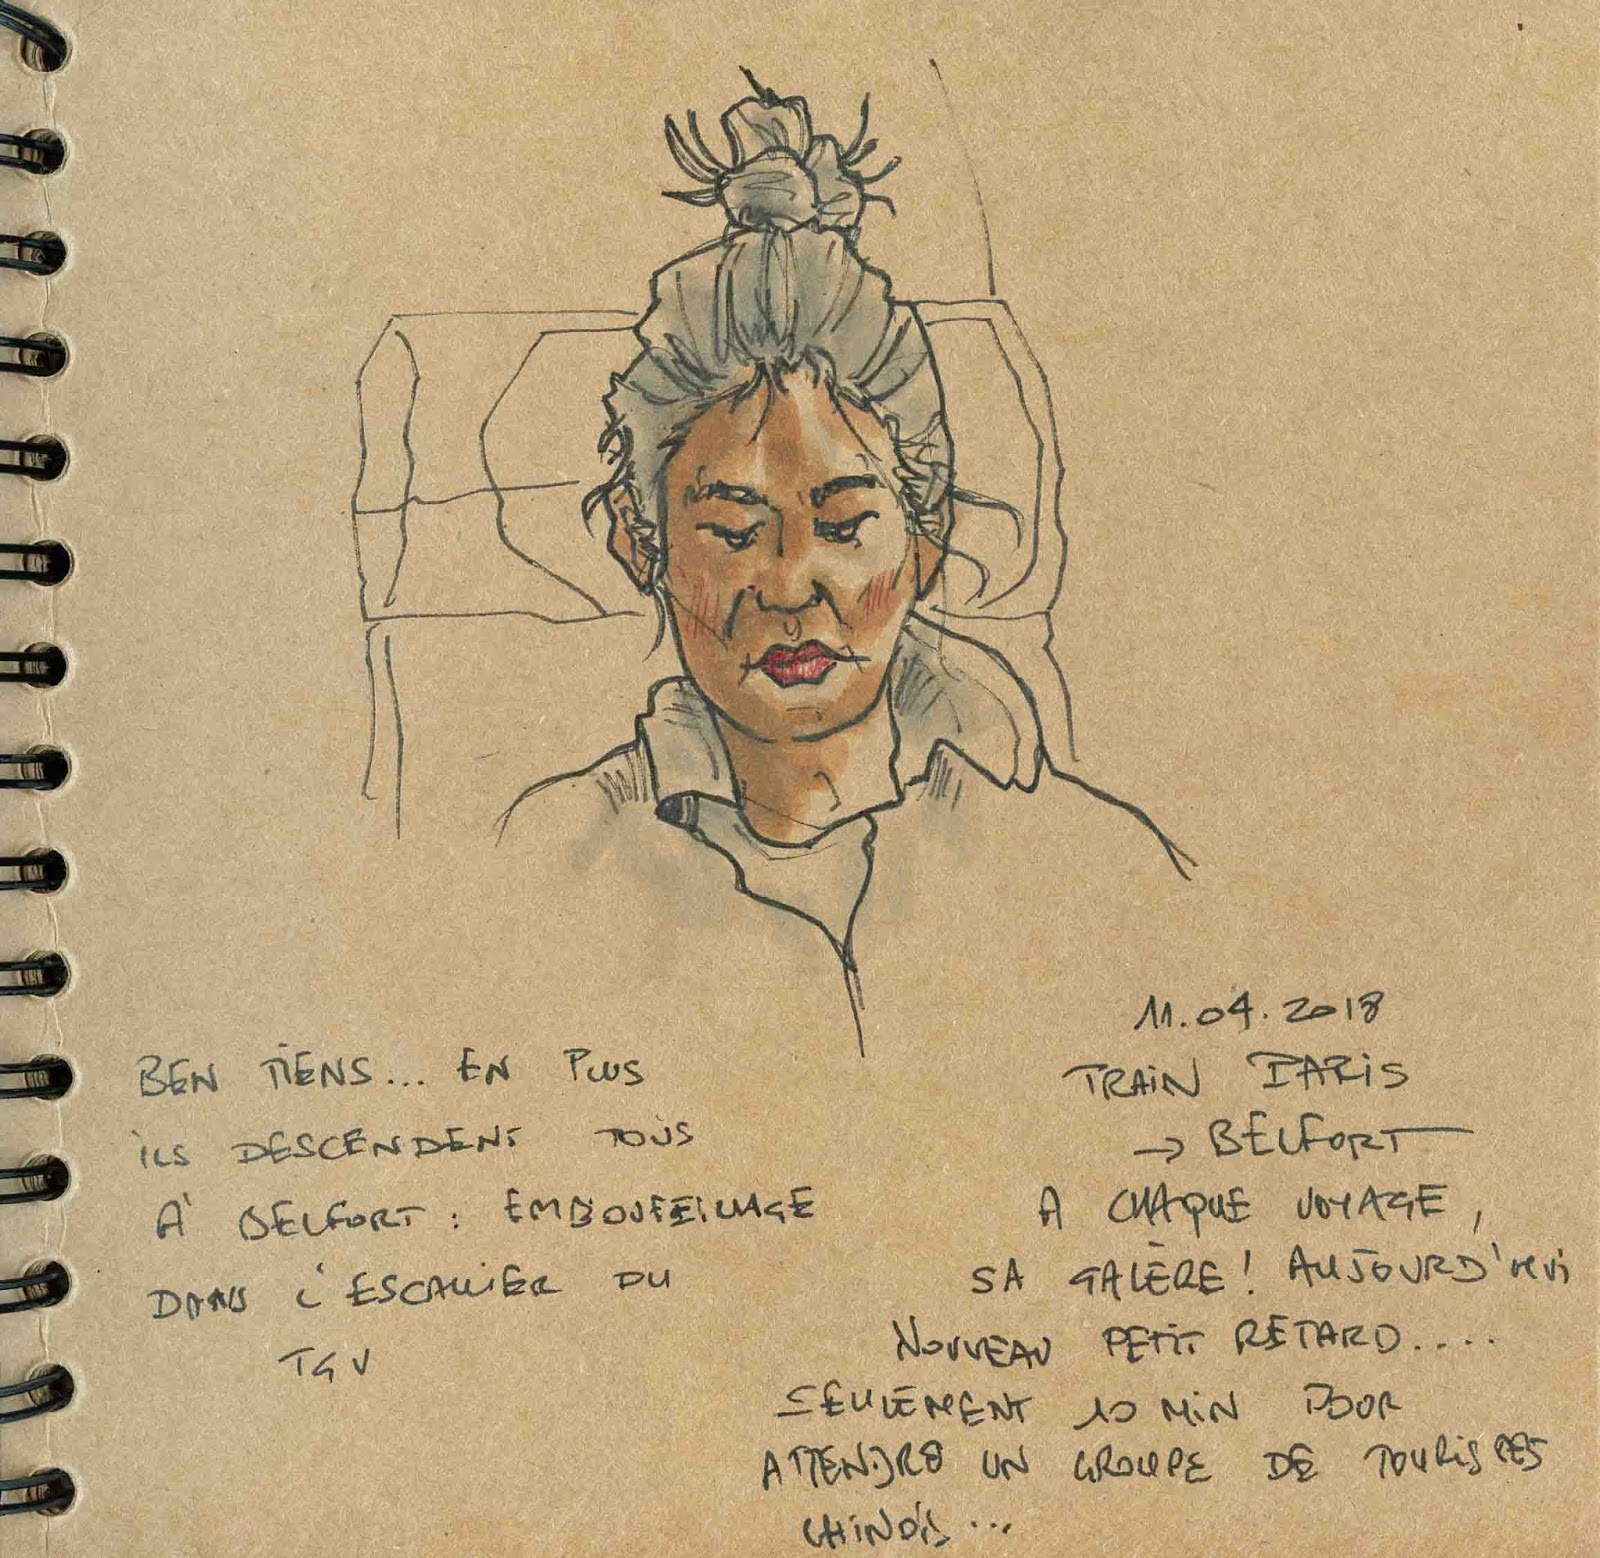 11.04.2018
TRAIN PARIS
→ BELFORT
A CHAQUE VOYAGE,
SA GALÈRE! AUJOURD'HUI
NOUVEAU PETIT RETARD....
SEULEMENT 10 MIN POUR
ATTENDRE UN GROUPE DE TOURISTES
CHINOIS...
BEN TIENS... EN PLUS
ILS DESCENDENT TOUS
À BELFORT : EMBOUTEILLAGE
DANS L'ESCALIER DU
TGV